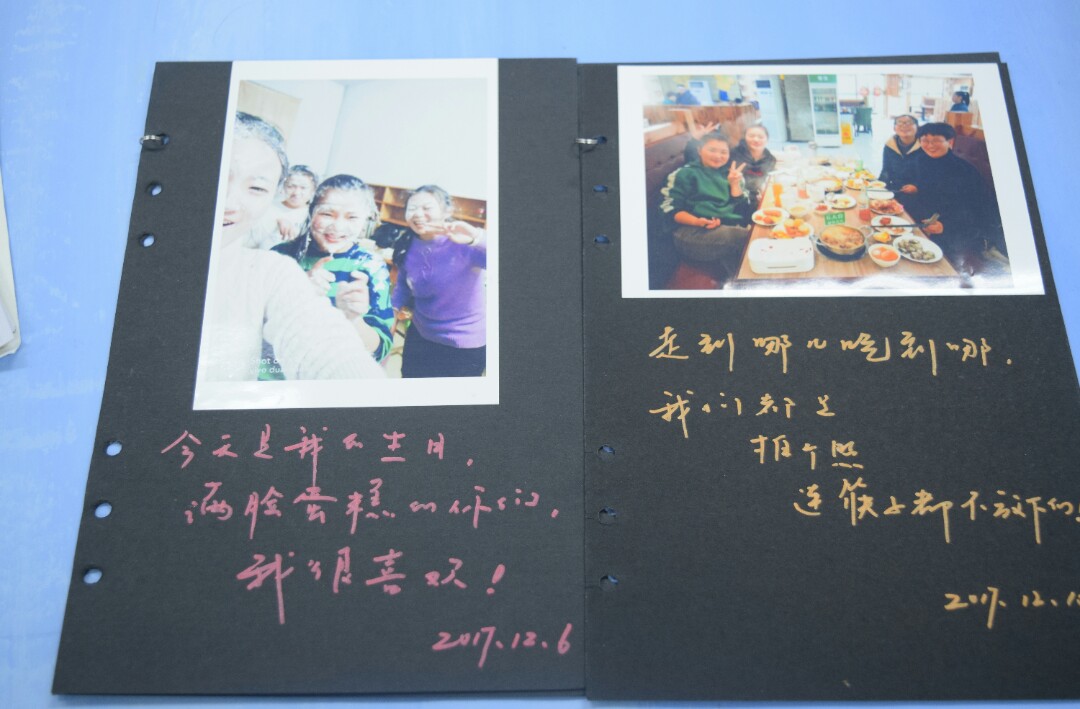 今天是我的生日，
满脸蛋糕的你们，
我很喜欢！
2017.12.6
走到哪儿吃到哪，
我们都是
拍个照
连筷子都不放下的，
2017.12.